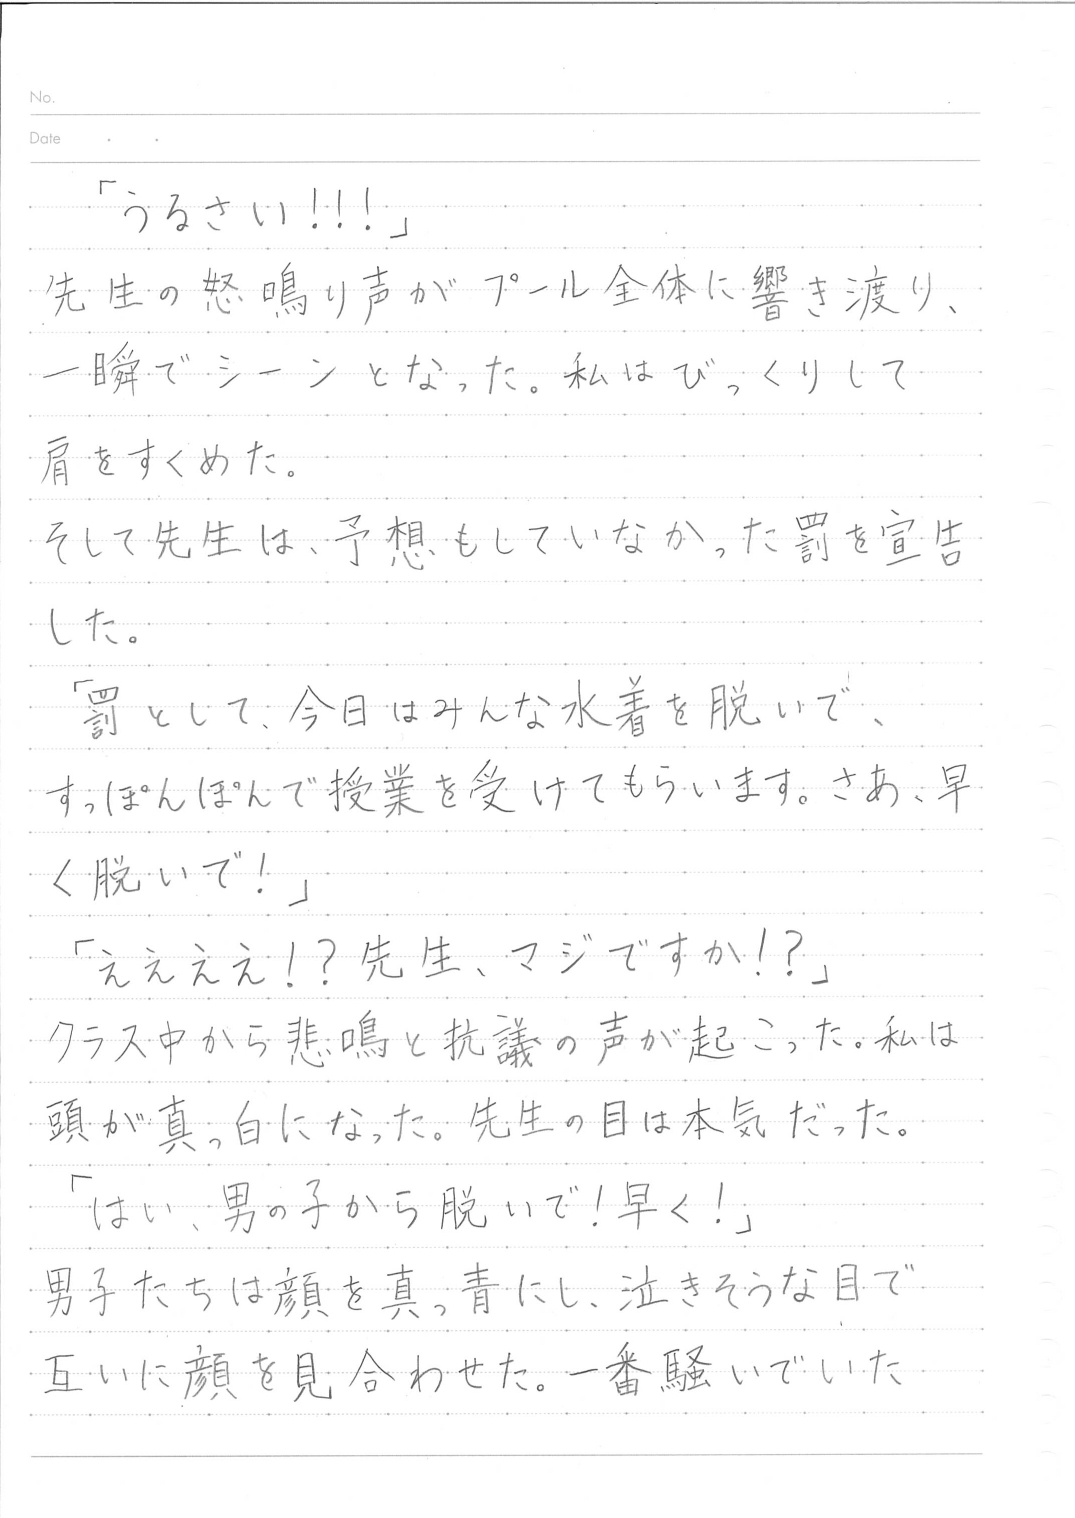 No.
Date
「うるさい!!!」
先生の怒鳴り声がプール全体に響き渡り、
一瞬でシーンとなった。私はびっくりして
肩をすくめた。
そして先生は、予想もしていなかった罰を宣告
した。
「罰として、今日はみんな水着を脱いで、
すっぽんぽんで授業を受けてもらいます。さあ、早
く脱いで!」
「ええええ!?先生、マジですか!?」
クラス中から悲鳴と抗議の声が起こった。私は
頭が真っ白になった。先生の目は本気だった。
「はい、男の子から脱いで!早く!」
男子たちは顔を真っ青にし、泣きそうな目で
互いに顔を見合わせた。一番騒いでいた